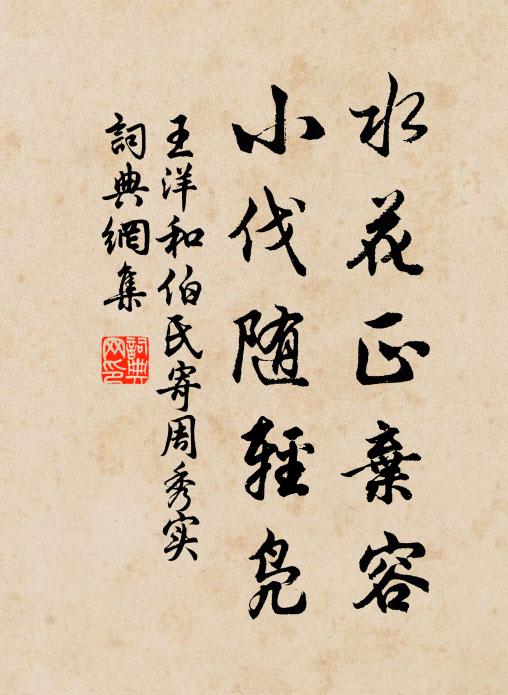 水花正棄容
小伐随輕凫
王洋和伯氏寄周秀实
詞典網集
詞典网印